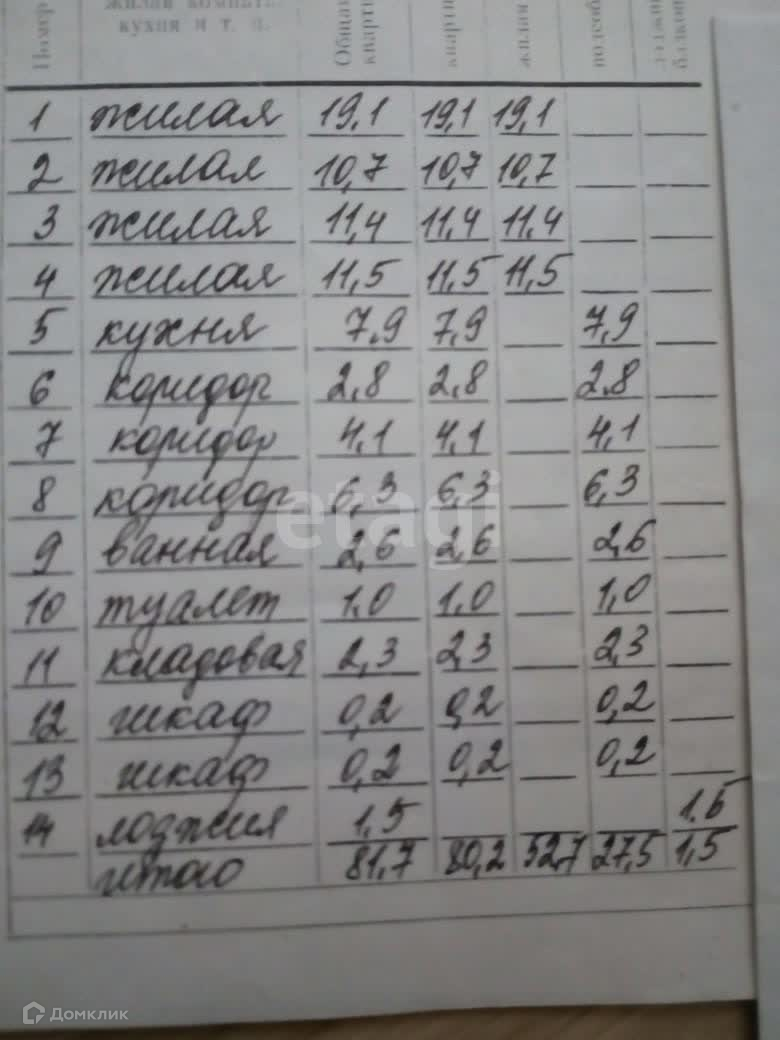 Номер
жилая комната,
кухня и т. п.
1 жилая 19,1 19,1 19,1 — —
2 жилая 10,7 10,7 10,7 — —
3 жилая 11,4 11,4 11,4 — —
4 жилая 11,5 11,5 11,5 — —
5 кухня 7,9 7,9 — 7,9 —
6 коридор 2,8 2,8 — 2,8 —
7 коридор 4,1 4,1 — 4,1 —
8 коридор 6,3 6,3 — 6,3 —
9 ванная 2,6 2,6 — 2,6 —
10 туалет 1,0 1,0 — 1,0 —
11 кладовая 2,3 2,3 — 2,3 —
12 шкаф 0,2 0,2 — 0,2 —
13 шкаф 0,2 0,2 — 0,2 —
14 лоджия 1,5 — — — 1.5
итого 81,7 80,2 52,7 27,5 1,5
etagi
Домклик